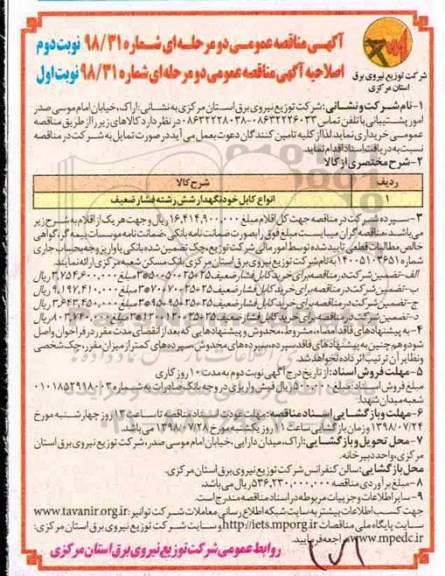 آگهی مناقصه عمومی دو مرحله ای شماره ۹۸/۳۱ نوبت دوم
اصلاحیه آگهی مناقصه عمومی دو مرحله ای شماره ۹۸/۳۱ نوبت اول
شرکت توزیع نیروی برق
استان مرکزی
۱- نام شرکت و نشانی: شرکت توزیع نیروی برق استان مرکزی به نشانی: اراک، خیابان امام موسی صدر
امور پشتیبانی با تلفن تماس ۰۸۶۳۲۲۲۶۰۳۳-۰۸۶۳۲۲۲۸۰۳۸ در نظر دارد کالاهای زیر را از طریق مناقصه
عمومی خریداری نماید. لذا از کلیه تامین کنندگان دعوت بعمل می آید در صورت تمایل به شرکت در مناقصه
نسبت به دریافت اسناد اقدام نماید.
۲- شرح مختصری از کالا
ردیف شرح کالا
۱ انواع کابل خودنگهدار شش رشته فشار ضعیف
۳- سپرده شرکت در مناقصه جهت کل اقلام مبلغ ۱۶,۴۱۴,۹۰۰,۰۰۰ ریال و جهت هر یک از اقلام به شرح زیر
می باشد. مناقصه گران میبایست مبلغ فوق را بصورت ضمانتنامه بانکی، ضمانت نامه موسسات بیمه گر، گواهی
خالص مطالبات قطعی تایید شده توسط امور مالی شرکت توزیع، چک تضمین شده بانکی یا واریز وجه به حساب جاری
شماره ۱۴۰۰۵۱۰۳۶۵۱ به نام شرکت توزیع نیروی برق استان مرکزی بانک مسکن شعبه مرکزی ارائه نمایند.
الف- تضمین شرکت در مناقصه برای خرید کابل فشار ضعیف مبلغ ۳,۷۵۴,۶۰۰,۰۰۰ ریال
ب- تضمین شرکت در مناقصه برای خرید کابل فشار ضعیف مبلغ ریال
ج- تضمین شرکت در مناقصه برای خرید کابل فشار ضعیف مبلغ ریال
د- تضمین شرکت در مناقصه برای خرید کابل فشار ضعیف مبلغ ریال
۴- به پیشنهادهای فاقد امضاء، مشروط، مخدوش و پیشنهادهایی که بعد از انقضای مدت مقرر در فراخوان واصل
شود و هم چنین به پیشنهادهای فاقد سپرده، سپرده های مخدوش، سپرده های کمتر از میزان مقرر، چک شخصی
و نظایر آن ترتیب اثر داده نخواهد شد.
۵- مهلت فروش اسناد: از تاریخ درج آگهی نوبت دوم به مدت ۱۰ روز کاری
مبلغ فروش اسناد ۵۰۰,۰۰۰ ریال فیش واریزی در وجه بانک صادرات به شماره ۰۱۰۱۸۵۲۹۱۸۰۰۳
شعبه میدان شهدا.
۶- مهلت و بازگشایی اسناد مناقصه: مهلت عودت اسناد مناقصه تا ساعت ۱۳ روز چهارشنبه مورخ
۱۳۹۸/۰۷/۲۴ و زمان بازگشایی ساعت ۱۱ روز یکشنبه مورخ ۱۳۹۸/۰۷/۲۸ می باشد.
۷- محل تحویل و بازگشایی: اراک، میدان دارایی، خیابان امام موسی صدر، شرکت توزیع نیروی برق استان
مرکزی، واحد دبیرخانه.
محل بازگشایی: سالن کنفرانس شرکت توزیع نیروی برق استان مرکزی.
۸- مبلغ برآوردی مناقصه ۵۳۶,۲۳۰,۰۰۰,۰۰۰ ریال می باشد.
۹- سایر اطلاعات و جزییات مربوطه در اسناد مناقصه مندرج است.
جهت کسب اطلاعات بیشتر به سایت شبکه اطلاع رسانی معاملات شرکت توانیر: www.tavanir.org.ir
سایت پایگاه ملی مناقصات http://iets.mporg.ir و سایت شرکت توزیع نیروی برق استان مرکزی:
www.mpedc.ir مراجعه فرمایید.
روابط عمومی شرکت توزیع نیروی برق استان مرکزی